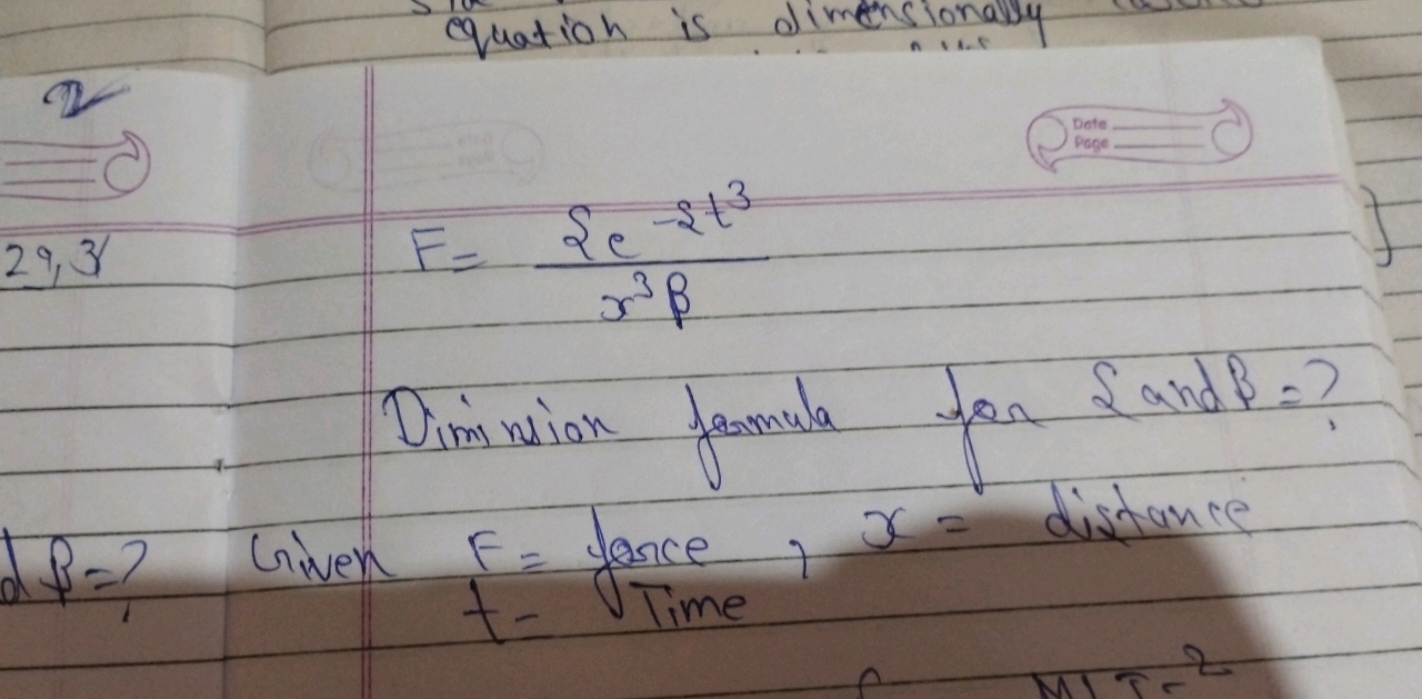 equation is dimensionally
Date
Page
29,3
F = ξe^-ξt^3 / x^3 β
Diminsion formula for ξ and β = ?
d β = ? Given F = force , x = distance
t = Time
MLT-2